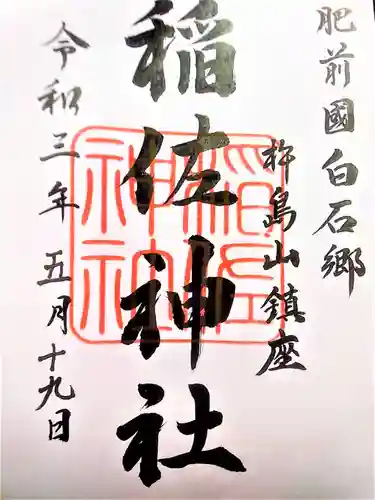 肥前國白石郷
杵島山鎮座
稲佐神社
稲佐
神社
令和三年五月十九日